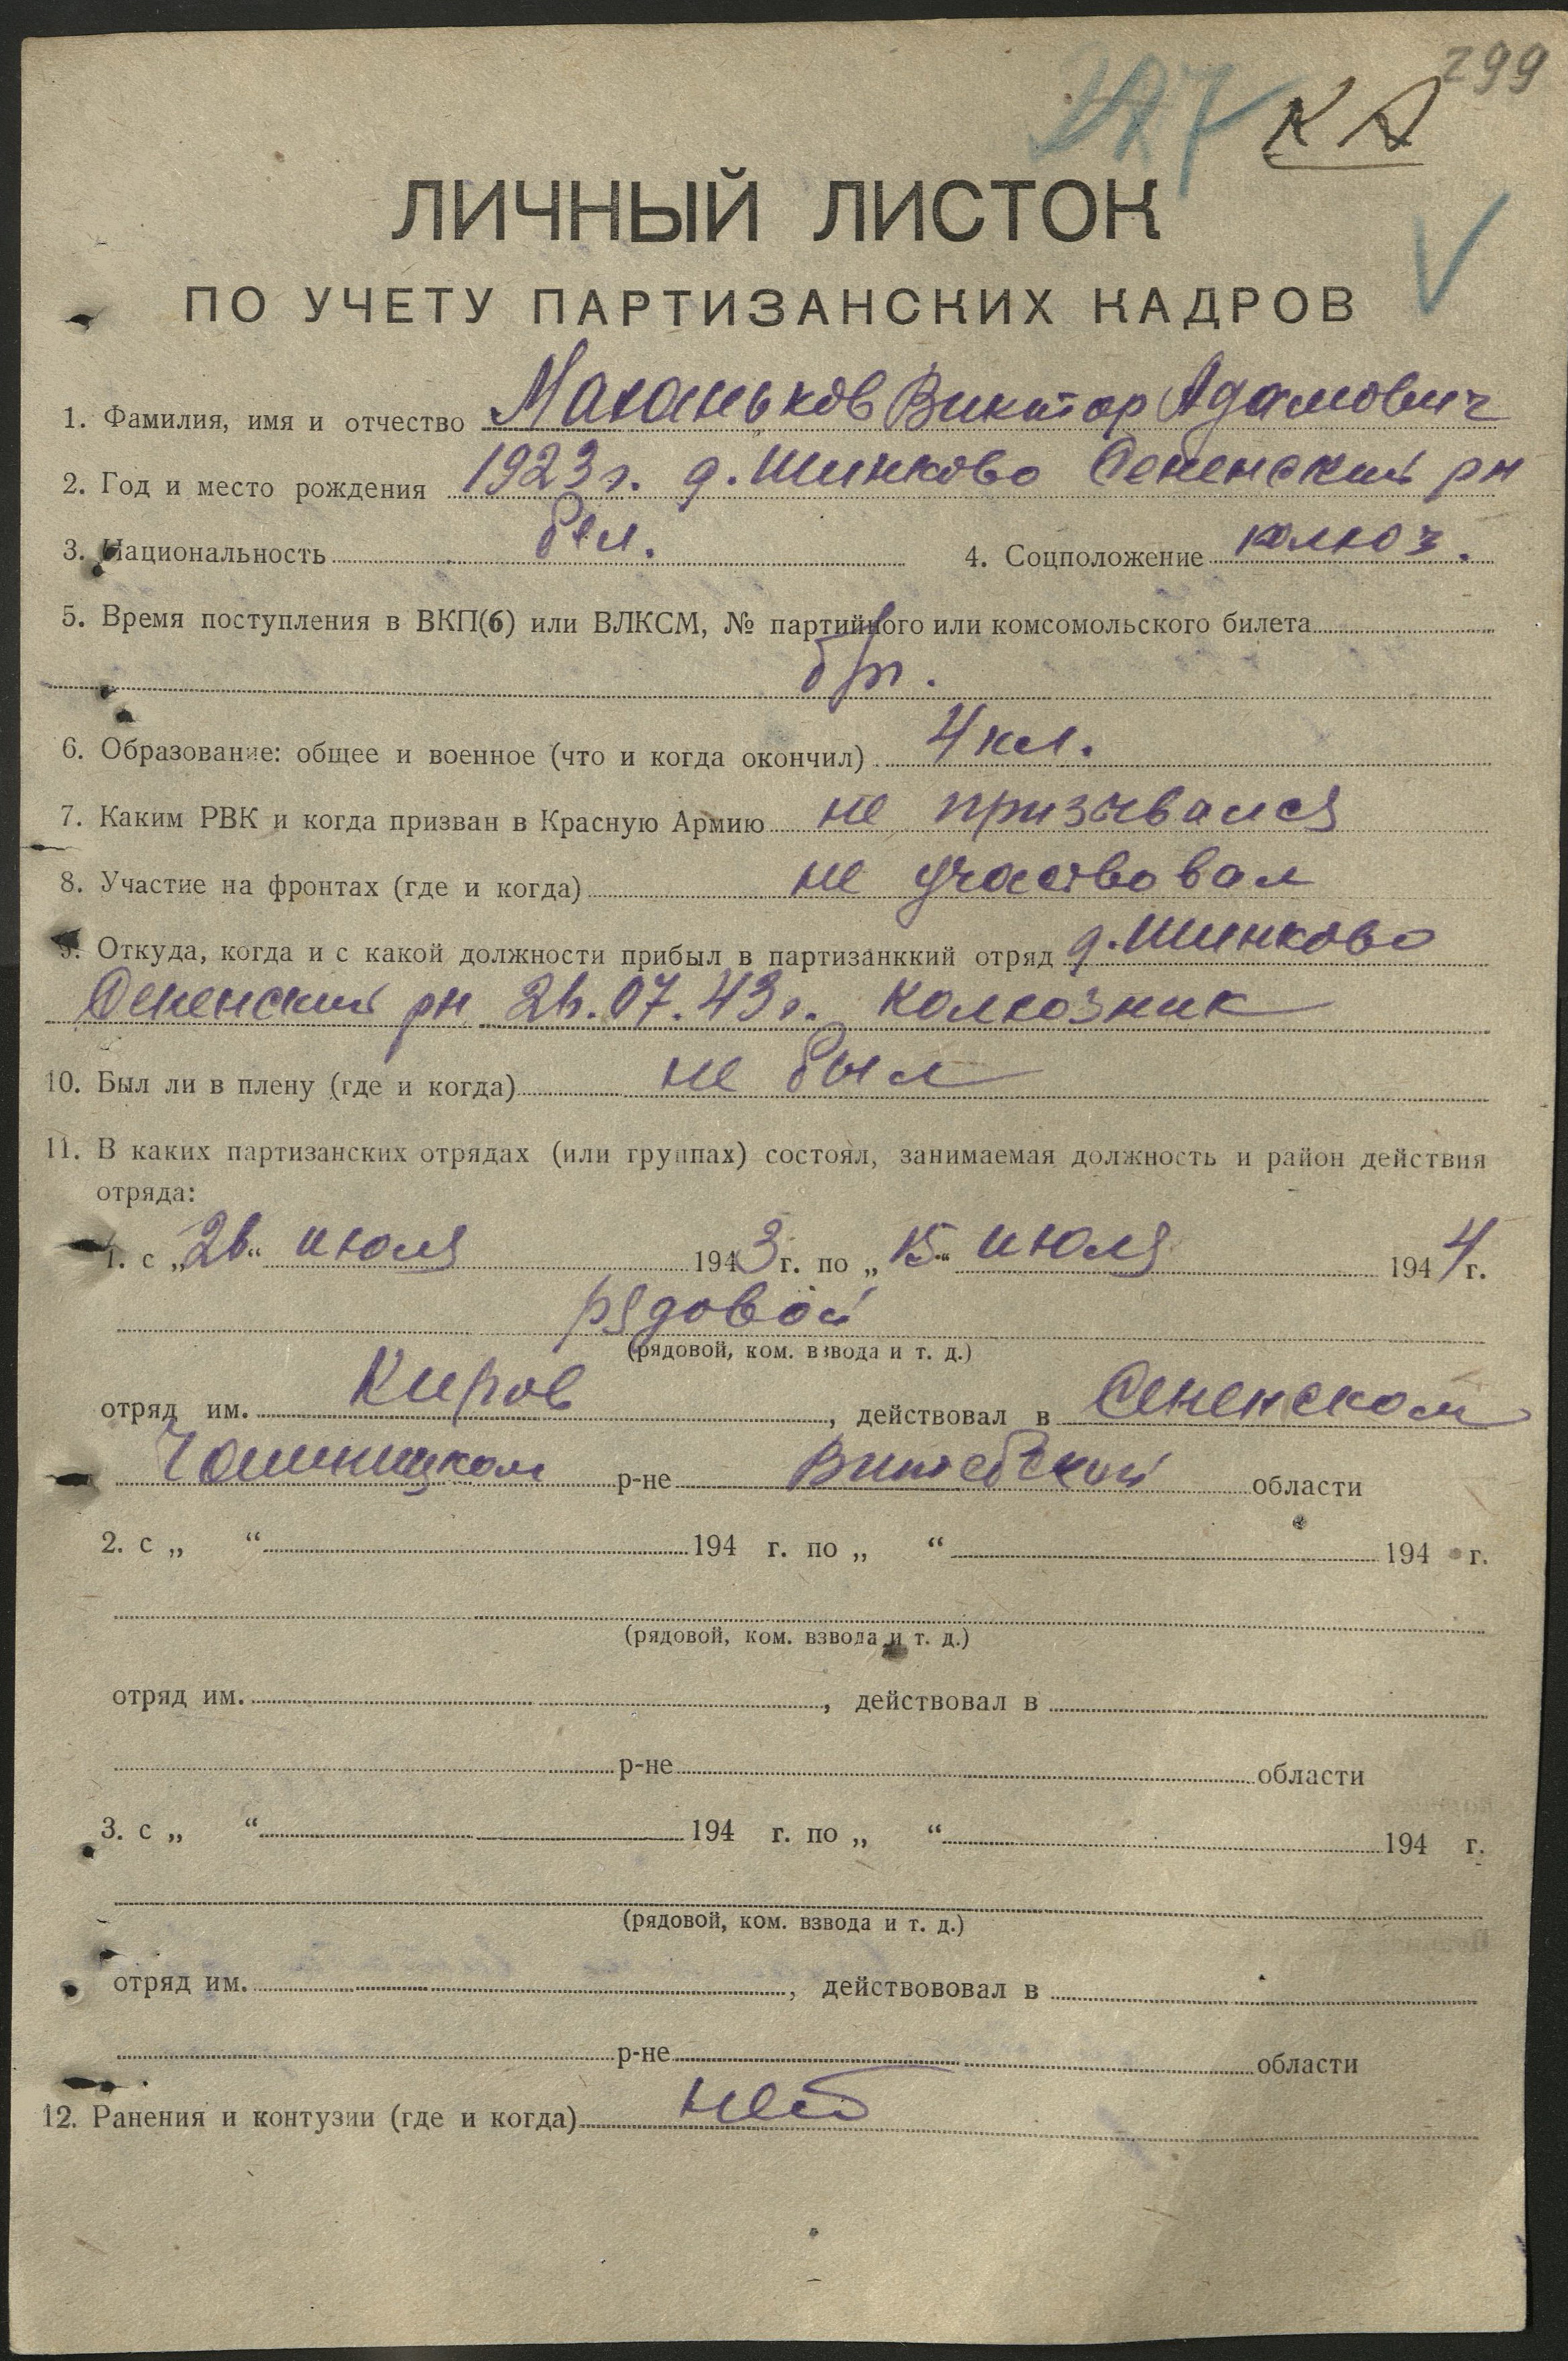 299
КА
ЛИЧНЫЙ ЛИСТОК
ПО УЧЕТУ ПАРТИЗАНСКИХ КАДРОВ
1. Фамилия, имя и отчество Маханьков Виктор Адамович
2. Год и место рождения 1923 г. д. Шинково Сененский рн
3. Национальность бел. 4. Соцположение колхоз.
5. Время поступления в ВКП(б) или ВЛКСМ, № партийного или комсомольского билета
б/п.
6. Образование: общее и военное (что и когда окончил) 4 кл.
7. Каким РВК и когда призван в Красную Армию не призывался
8. Участие на фронтах (где и когда) не участвовал
9. Откуда, когда и с какой должности прибыл в партизанккий отряд д. Шинково
Сененский рн 26.07.43 г. колхозник
10. Был ли в плену (где и когда) не был
11. В каких партизанских отрядах (или группах) состоял, занимаемая должность и район действия
отряда:
1. с „26“ июля 1943 г. по „15“ июля 1944 г.
рядовой
(рядовой, ком. взвода и т. д.)
отряд им. Киров, действовал в Сененском
Чашницком р-не Витебской области
2. с „ “ 194 г. по „ “ 194 г.
(рядовой, ком. взвода и т. д.)
отряд им. , действовал в
р-не области
3. с „ “ 194 г. по „ “ 194 г.
(рядовой, ком. взвода и т. д.)
отряд им. , действововал в
р-не области
12. Ранения и контузии (где и когда) нет